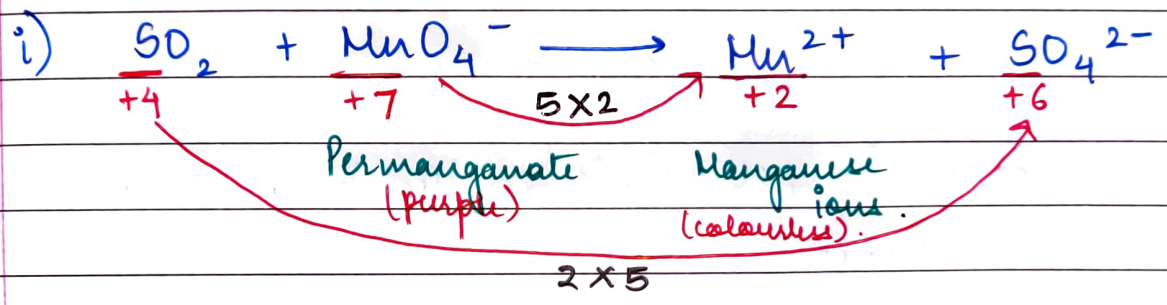 i) SO₂ + MnO₄⁻ ⟶ Mn²⁺ + SO₄²⁻
+4 +7 5×2 +2 +6
Permanganate Manganese
(purple) ions.
(colourless).
2×5